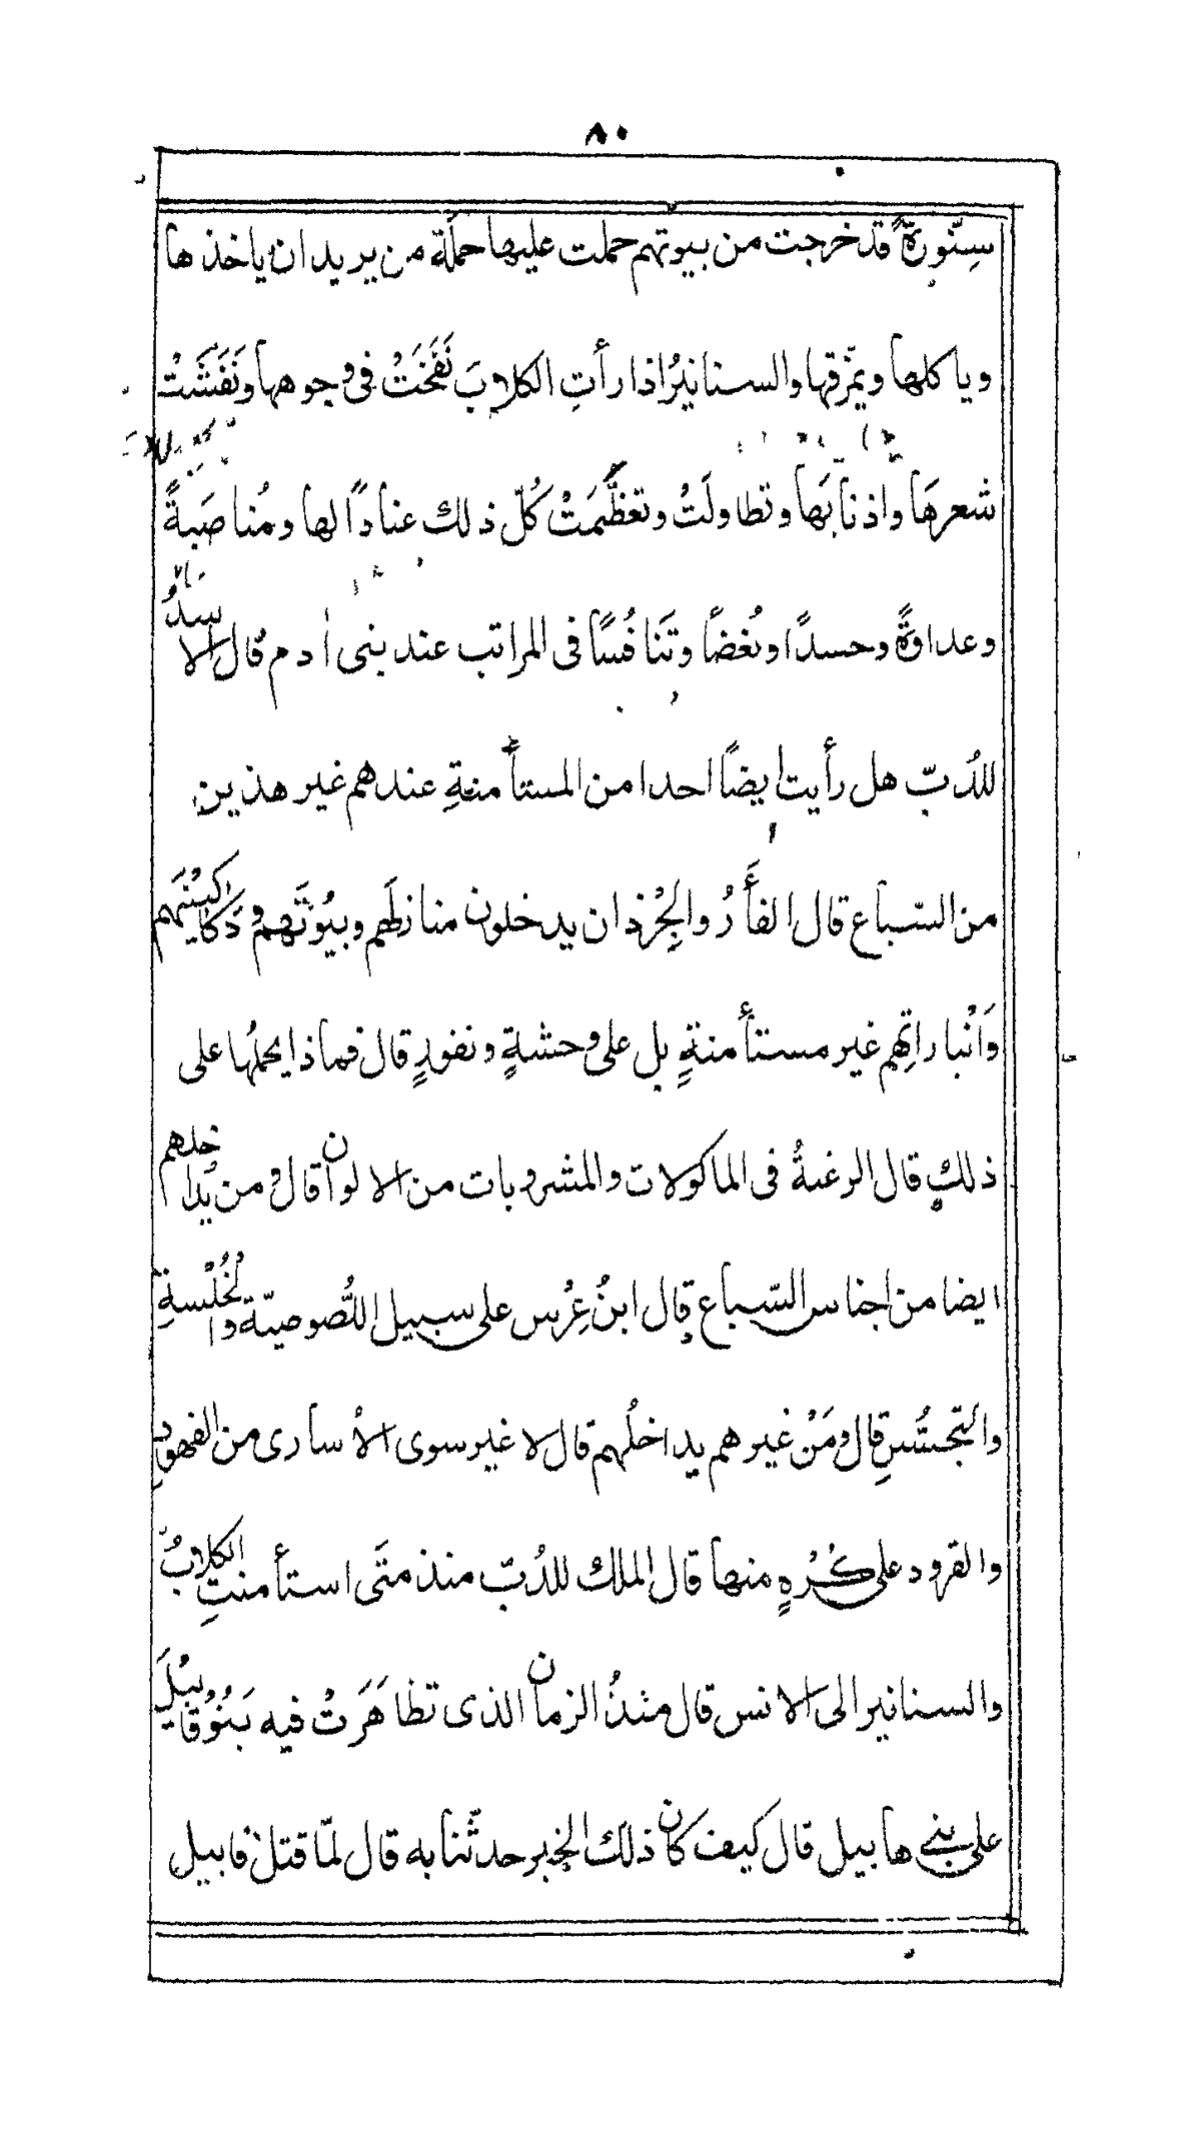 ٨٠
سِنّورةً قد خرجت من بيوتهم حملت عليها حملَة من يريد ان ياخذها
وياكلها ويمزّقها والسنانيرُ اذا رأتِ الكلابَ نَفَخَتْ فى وجوهها ونَفَشَتْ
شعرهَا واذنابَها وتطاولَتْ وتعظَّمَتْ كُلّ ذلك عنادًا لها ومُناصَبةً
وعداوةً وحسدًا وبُغضاً وتَنافُسًا فى المراتب عند بنى ادم قال الاسدُ
للدُبّ هل رأيت ايضًا احدا من المستأمنةِ عندهم غير هذين
من السّباع قال الفأرُ والجِرْذان يدخلون منازلَهم وبيُوتَهم ودَكاكيْنَهم
وَانْباراتِهم غير مستأمنةٍ بل على وحشةٍ ونفورٍ قال فماذا يحملُها على
ذلك قال الرغبةُ فى الماكولات والمشروبات من الالوان قال ومن يُداخلهم
ايضا من اجناس السّباع قال ابنُ عِرْس على سبيل اللُّصوصيّة والخُلْسةِ
والتجسُّسِ قال ومَنْ غيرهم يداخلُهم قال لا غير سوى الأسارى من الفهود
والقرود على كُرْهٍ منها قال الملك للدُبّ منذ متَى استأمنتِ الكلابُ
والسنانير الى الانس قال منذُ الزمان الذى تظاهَرَتْ فيه بَنُوْ قابيْلَ
على بنى هابيل قال كيف كان ذلك الخبر حدثّنا به قال لمّا قتل قابيل